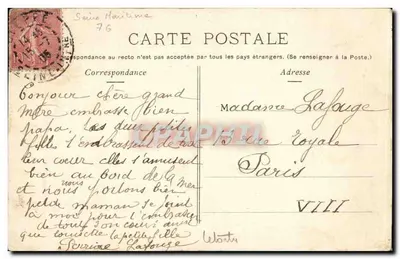 Seine Maritime
76
CARTE POSTALE
Correspondance au recto n'est pas acceptée par tous les pays étrangers. (Se renseigner à la Poste.)
Correspondance
Adresse
Bonjour chère grand
mère embrasse bien
papa. Les deux petites
fille t'embrassent de tout
leur cœur elles s'amusent
bien au bord de la mer
et nous nous portons bien
petite maman se joint
à moi pour t'embrasser
de tout son cœur ainsi
que la petite fille
Lafouge
Madame Lafouge
rue Royale
Paris
VIII